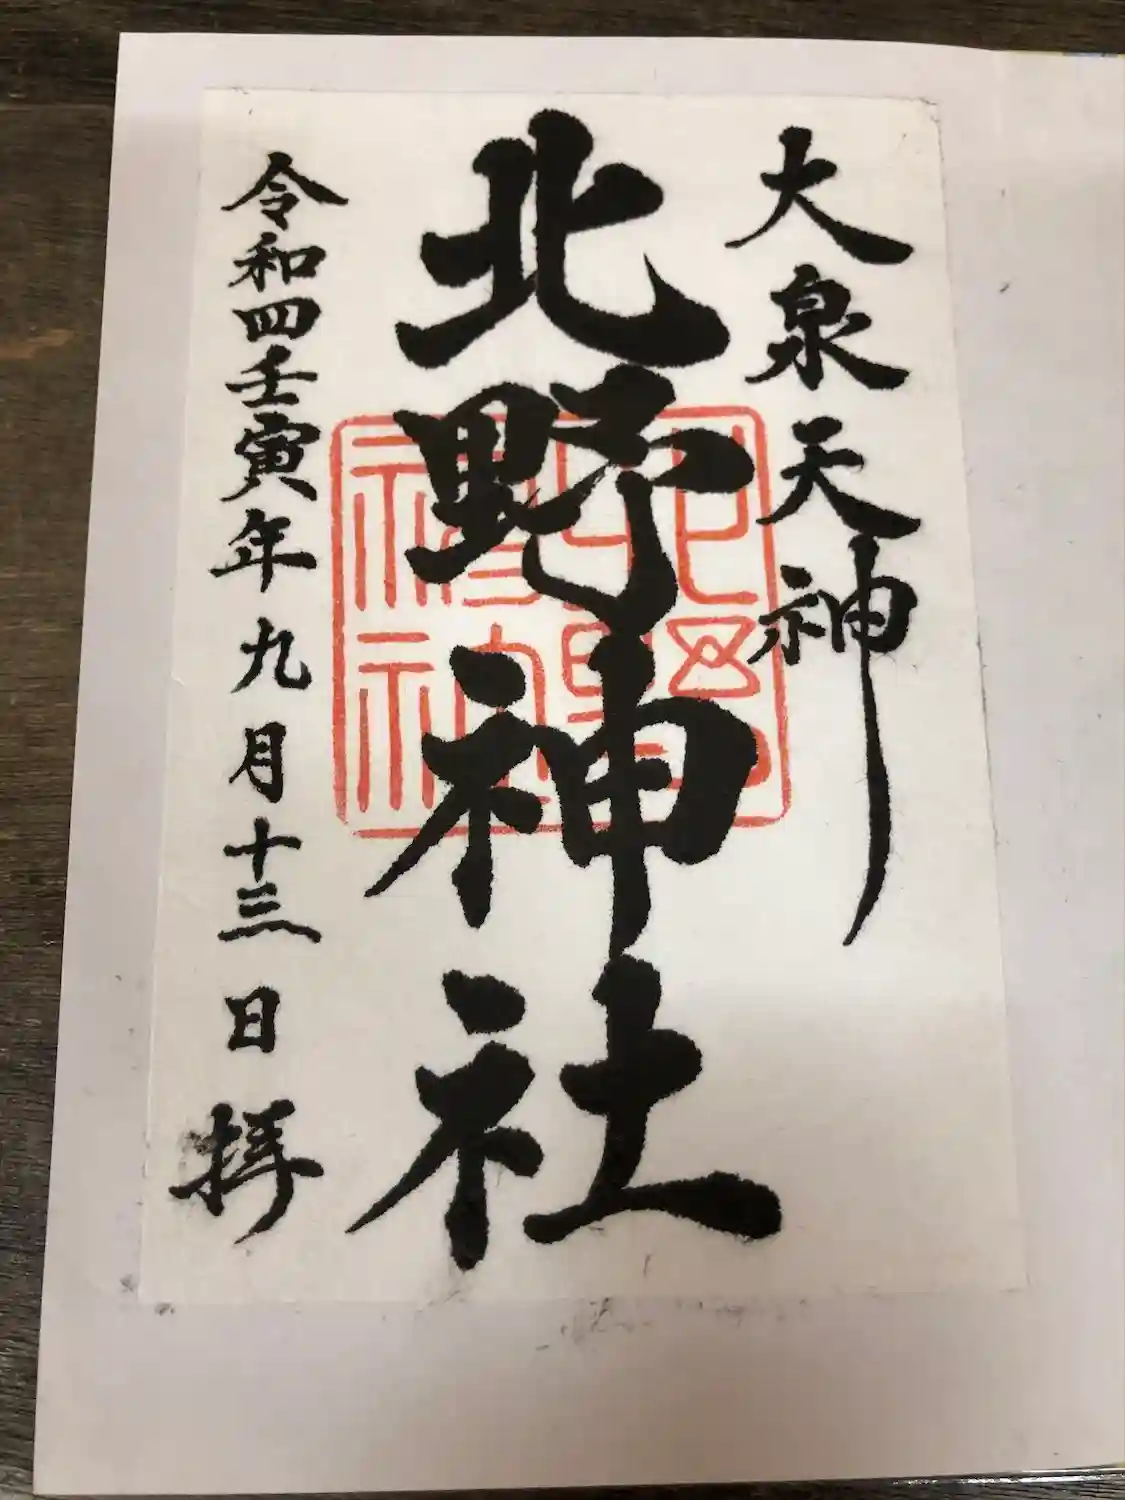 大泉天神
北野神社
北野
神社
令和四壬寅年九月十三日拝